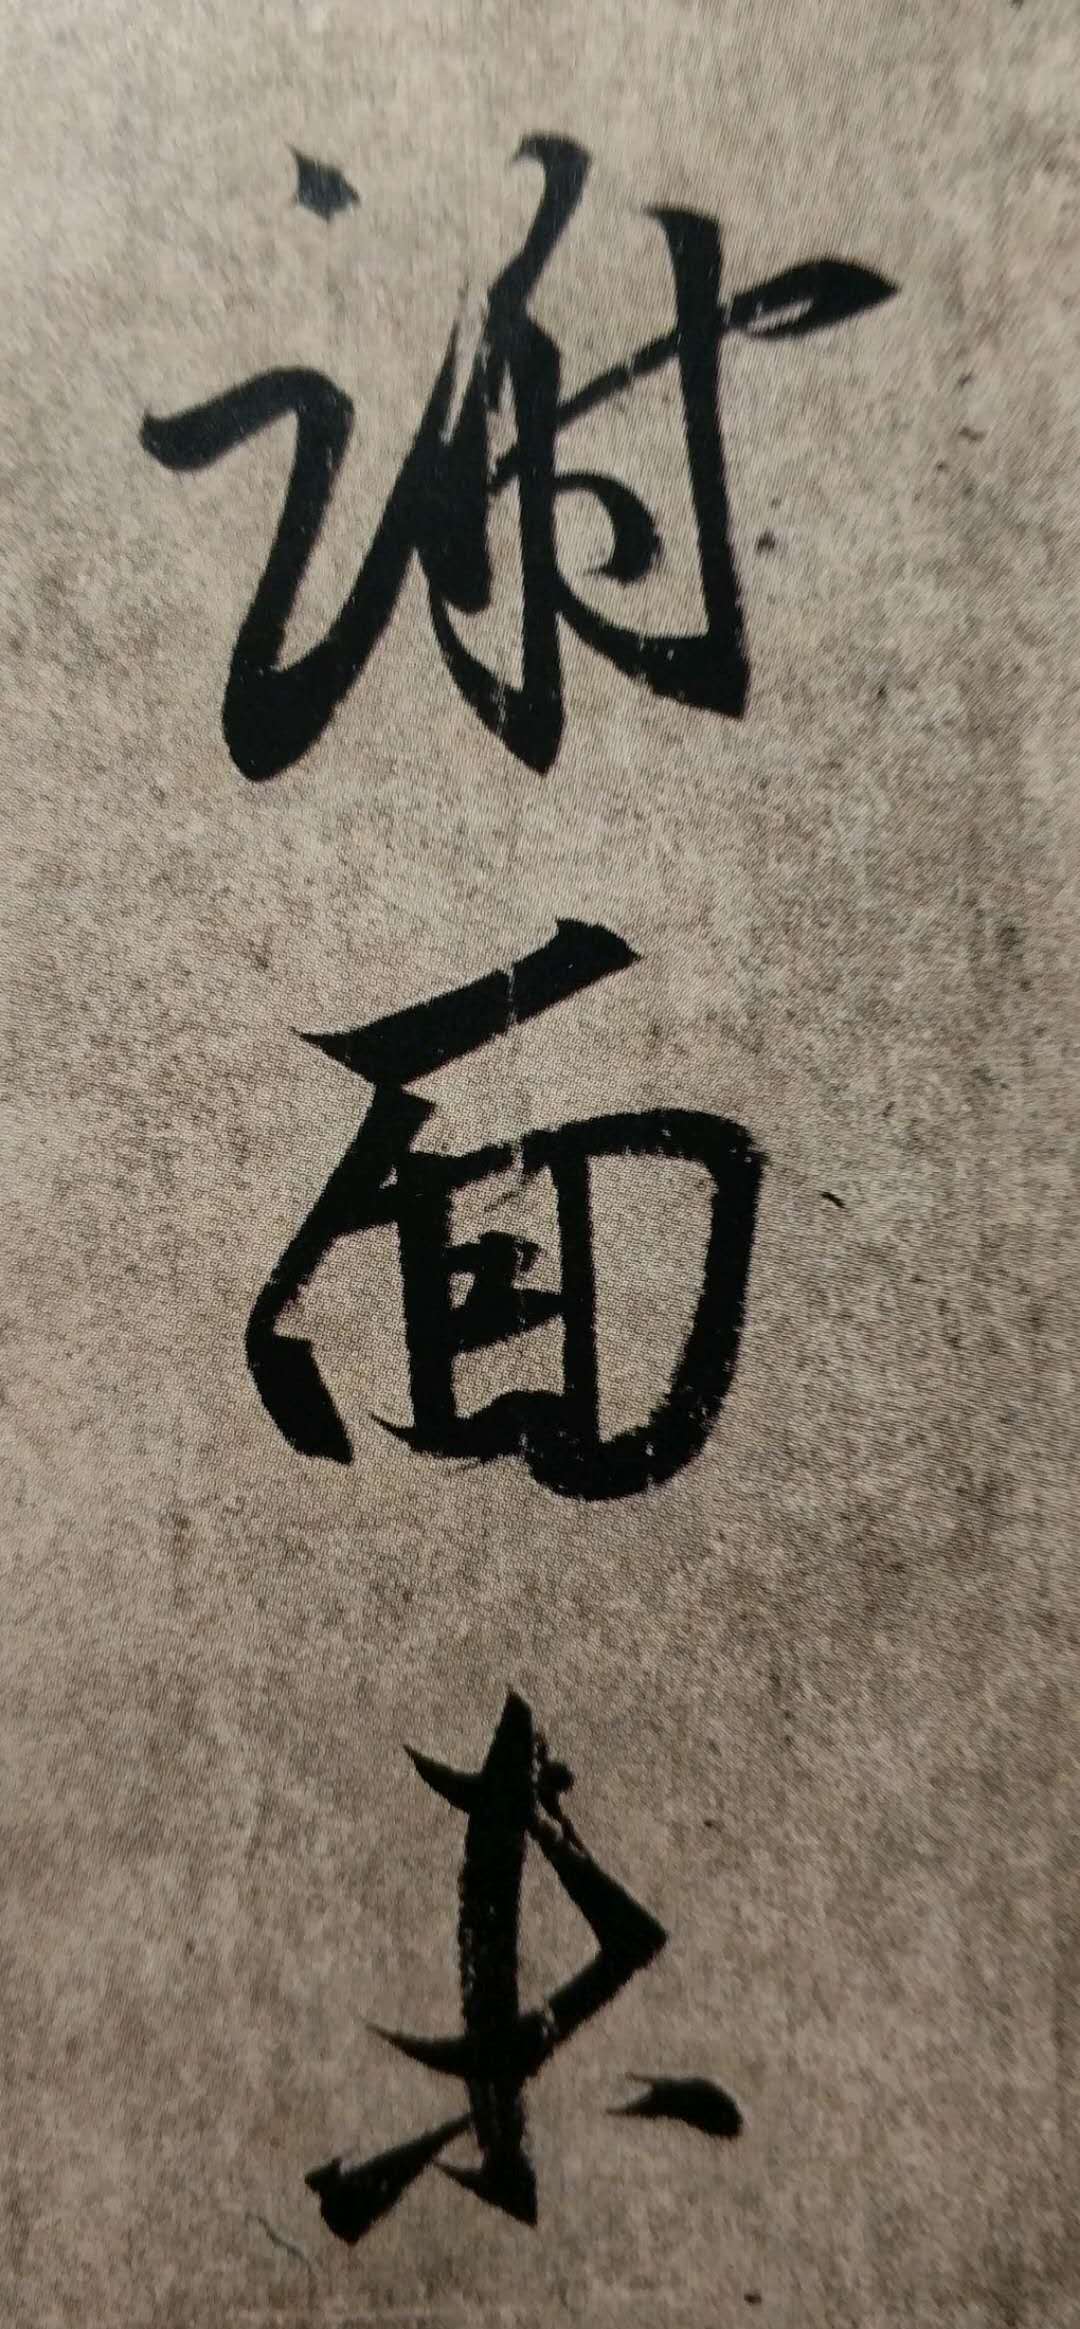 謝面未